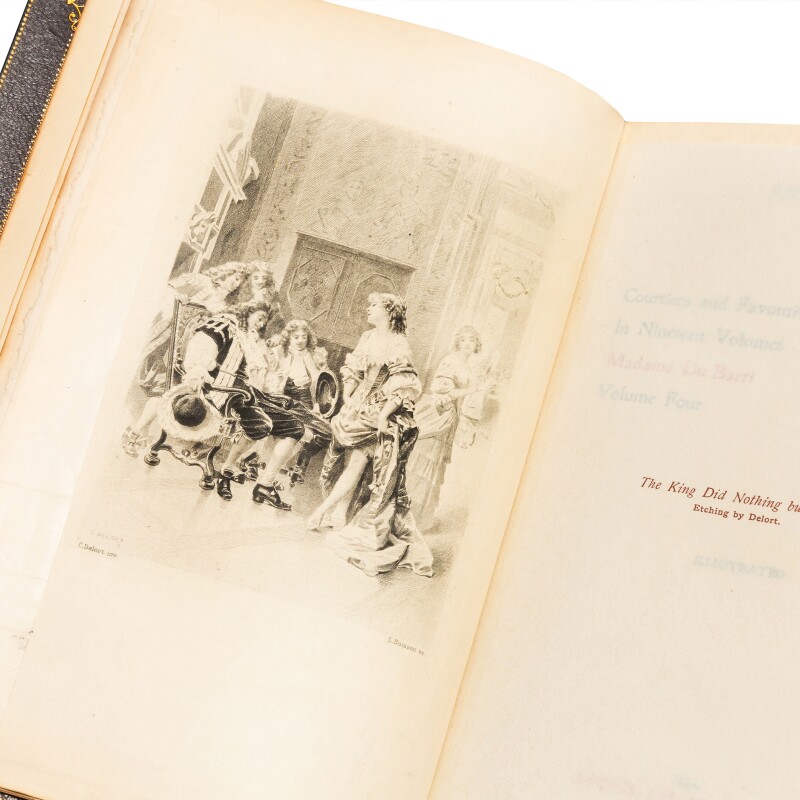 C. Delort inv.
The King Did Nothing bu
Etching by Delort.
Courtiers and Favouri
In Nineteen Volumes
Madame Du Barri
Volume Four
ILLUSTRATED